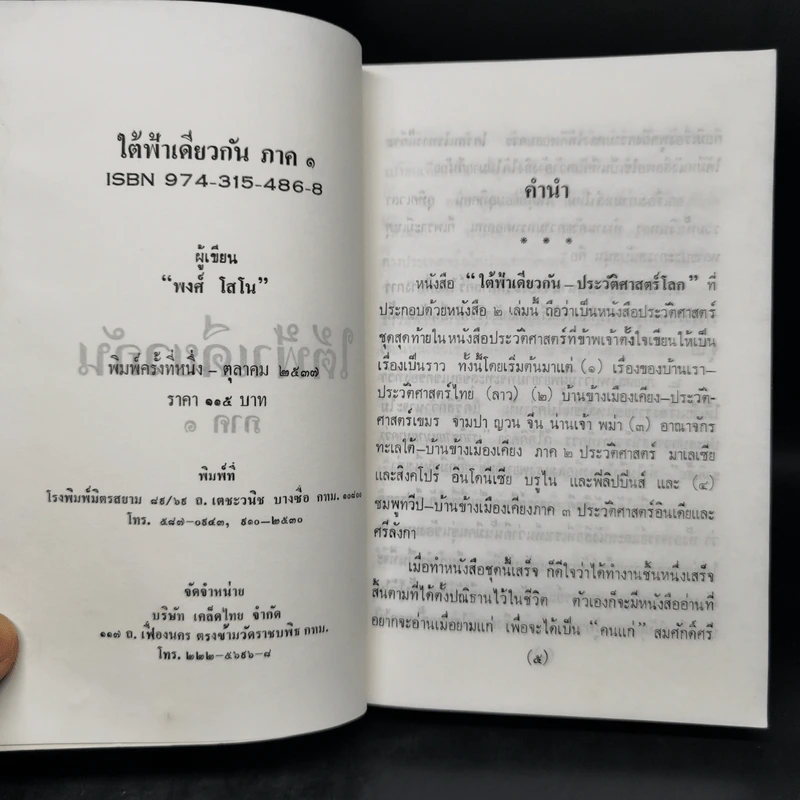 ใต้ฟ้าเดียวกัน ภาค ๑
ISBN 974-315-486-8
ผู้เขียน
“พงศ์ โสโน”
พิมพ์ครั้งที่หนึ่ง – ตุลาคม ๒๕๓๗
ราคา ๑๑๕ บาท
พิมพ์ที่
โรงพิมพ์มิตรสยาม ๘๙/๖๙ ถ.เตชะวนิช บางซื่อ กทม. ๑๐๘๐๐
โทร. ๕๘๗-๐๙๔๓, ๙๑๐-๒๕๓๐
จัดจำหน่าย
บริษัท เคล็ดไทย จำกัด
๑๑๗ ถ.เฟื่องนคร ตรงข้ามวัดราชบพิธ กทม.
โทร. ๒๒๒-๕๖๙๖-๘
คำนำ
* * *
หนังสือ “ใต้ฟ้าเดียวกัน – ประวัติศาสตร์โลก” ที่
ประกอบด้วยหนังสือ ๒ เล่มนี้ ถือว่าเป็นหนังสือประวัติศาสตร์
ชุดสุดท้ายในหนังสือประวัติศาสตร์ที่ข้าพเจ้าตั้งใจเขียนให้เป็น
เรื่องเป็นราว ทั้งนี้โดยเริ่มต้นมาแต่ (๑) เรื่องของบ้านเรา–
ประวัติศาสตร์ไทย (ลาว) (๒) บ้านข้างเมืองเคียง–ประวัติ-
ศาสตร์เขมร จามปา ญวน จีน น่านเจ้า พม่า (๓) อาณาจักร
ทะเลใต้–บ้านข้างเมืองเคียง ภาค ๒ ประวัติศาสตร์ มาเลเซีย
และสิงคโปร์ อินโดนีเซีย บรูไน และฟิลิปปินส์ และ (๔)
ชมพูทวีป–บ้านข้างเมืองเคียงภาค ๓ ประวัติศาสตร์อินเดียและ
ศรีลังกา
เมื่อทำหนังสือชุดนี้เสร็จ ก็ดีใจว่าได้ทำงานชิ้นหนึ่งเสร็จ
สิ้นตามที่ได้ตั้งปณิธานไว้ในชีวิต ตัวเองก็จะมีหนังสืออ่านที่
อยากจะอ่านเมื่อยามแก่ เพื่อจะได้เป็น “คนแก่” สมศักดิ์ศรี
(๕)